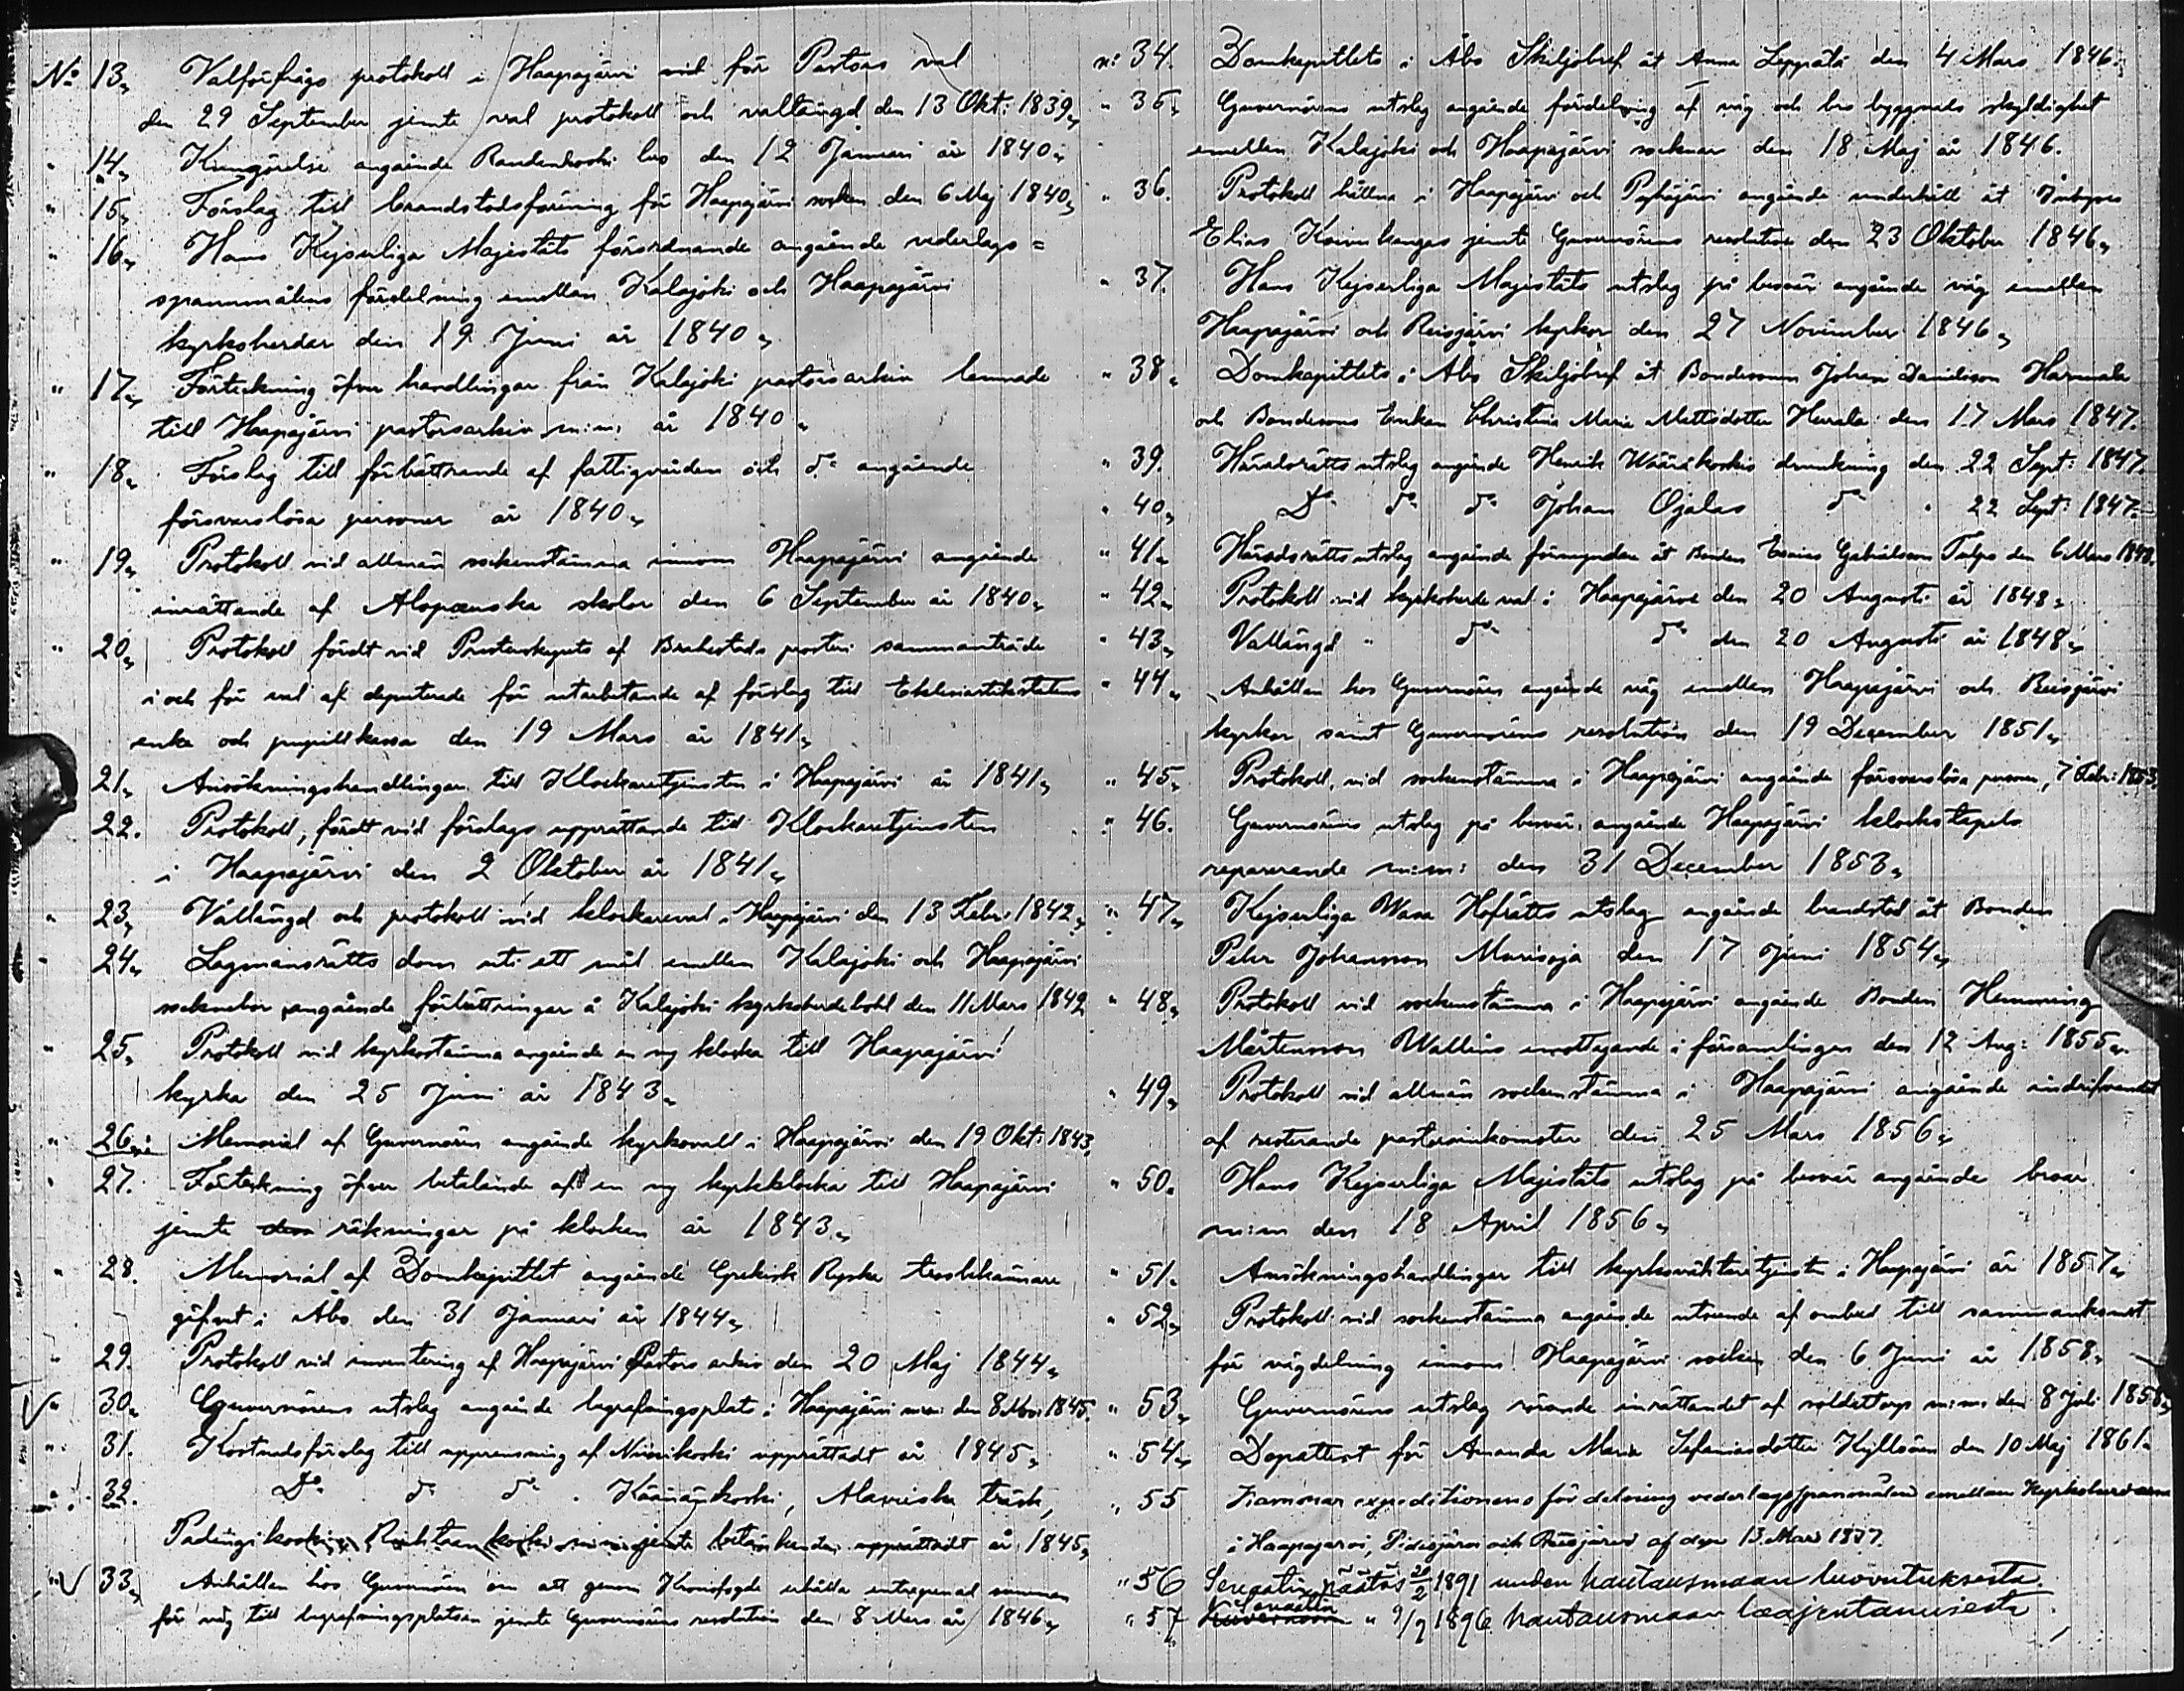 No 13. Valförfrågs protokoll i Haapajärvi vid för Pastors val
den 29 September jemte val protokoll och vallängd den 13 Okt: 1839.
" 14. Kungörelse angående Raudaskoski bro den 12 Januari år 1840.
" 15. Förslag till brandstodsförening för Haapajärvi socken den 6 Maj 1840.
" 16. Hans Kejserliga Majestäts förordnande angående vederlags=
spannmålens fördelning emellan Kalajoki och Haapajärvi
kyrkoherdar den 19 Juni år 1840.
" 17. Förteckning öfver handlingar från Kalajoki pastorsarkiv lemnade
till Haapajärvi pastorsarkiv m:m: år 1840.
" 18. Förslag till förbättrande af fattigvården och do angående
försvarslösa personer år 1840.
" 19. Protokoll vid allmän sockenstämma innom Haapajärvi angående
inrättande af Alopaeuska skolor den 6 September år 1840.
" 20. Protokoll fördt vid Presterskapets af Brahestads prosteri sammanträde
i och för val af deputerade för utarbetande af förslag till Eklesiastikstatens
enke och pupillkassa den 19 Mars år 1841.
21. Ansökningshandlingar till Klockaretjensten i Haapajärvi år 1841.
22. Protokoll, fördt vid förslags upprättande till Klockaretjensten
i Haapajärvi den 2 Oktober år 1841.
" 23. Vallängd och protokoll vid klockareval i Haapajärvi den 13 Febr: 1842.
" 24. Lagmansrätts dom uti ett mål emellan Kalajoki och Haapajärvi
sockneboar angående förbättringar å Kalajoki kyrkoherdebohl den 11 Mars 1842
" 25. Protokoll vid kyrkostämma angående en ny klocka till Haapajärvi
kyrka den 25 Juni år 1843.
" 26. Memorial af Guvernören angående kyrkovall i Haapajärvi den 19 Okt: 1843.
" 27. Förteckning öfver betalande af en ny kyrkklocka till Haapajärvi
jemte den räkningar på klockan år 1843.
" 28. Memorial af Domkapitlet angående Grekisk Ryska trosbekännare
gifvet i Åbo den 31 Januari år 1844.
" 29. Protokoll vid inventering af Haapajärvi Pastors arkiv den 20 Maj 1844.
√ " 30. Guvernörens utslag angående begrafningsplats i Haapajärvi m:m: den 8 Nov: 1845.
" 31. Kostnadsförslag till upprensning af Niinikoski upprättadt år 1845.
" 32. Do do do Käinäskoski, Alavieska träsk,
Padingikoski, m:m: jemte betänkanden upprättadt år 1845.
" √ 33. Anhållan hos Guvernören om att genom Kronofogde erhålla entreprenad summan
för väg till begrafningsplatsen jemte Guvernörens resolution den 8 Mars år 1846.
n: 34. Domkapitlets i Åbo Skiljobref åt Anna Leppälä den 4 Mars 1846.
" 35. Guvernörens utslag angående fördelning af väg och bro byggnads skyldighet
emellan Kalajoki och Haapajärvi socknar den 18 Maj år 1846.
" 36. Protokoll hållna i Haapajärvi och Pyhäjärvi angående underhåll åt
Elias Koivukangas jemte Guvernörens resolution den 23 Oktober 1846.
" 37. Hans Kejserliga Majestäts utslag på besvär angående väg emellan
Haapajärvi och Reisjärvi kyrkor den 27 November 1846.
" 38. Domkapitlets i Åbo Skiljobref åt Bondesonen Johan Danielsson Harmala
och Bondesons Enkan Christina Maria Mattsdotter Hurula den 17 Mars 1847.
" 39. Häradsrätts utslag angående Henrik Määräkoskis drunkning den 22 Sept: 1847.
" 40. Do do do Johan Ojalas do " 22 Sept: 1847.
" 41. Häradsrätts utslag angående förmyndare åt Bonden Esaias Gabrielsson Tulpo den 6 Mars 1848.
" 42. Protokoll vid kyrkoherde val i Haapajärvi den 20 Augusti år 1848.
" 43. Vallängd " do do den 20 Augusti år 1848.
" 44. Anhållan hos Guvernören angående väg emellan Haapajärvi och Reisjärvi
kyrkor samt Guvernörens resolution den 19 December 1851.
" 45. Protokoll, vid sockenstämma i Haapajärvi angående försvarslösa personer, 7 Febr: 1853.
" 46. Guvernörens utslag på besvär, angående Haapajärvi klockstapels
reparerande m:m: den 31 December 1853.
" 47. Kejserliga Wasa Hofrätts utslag angående brandstod åt Bonden
Pehr Johansson Marisoja den 17 Juni 1854.
" 48. Protokoll vid sockenstämma i Haapajärvi angående Bonden Hemming
Mårtensson Wallins emottagande i församlingen den 12 Aug: 1855.
" 49. Protokoll vid allmän sockenstämma i Haapajärvi angående indrifvandet
af resterande pastorsinkomster den 25 Mars 1856.
" 50. Hans Kejserliga Majestäts utslag på besvär angående broar
m:m den 18 April 1856.
" 51. Ansökningshandlingar till kyrkoväktaretjensten i Haapajärvi år 1857.
" 52. Protokoll vid sockenstämma angående utseende af ombud till sammankomst
för vägdelning innom Haapajärvi socken den 6 Juni år 1858.
" 53. Guvernörens utslag rörande inrättandet af soldattorp m:m: den 8 Juli 1858.
" 54. Dopattest för Amanda Maria Sefaniasdotter Kyllönen den 10 Maj 1861.
" 55 expeditionens fördelning vederlagsspannmålen emellan Kyrkoherdarne
i Haapajärvi, Pidisjärvi och Reisjärvi af den 13 Mars 1877.
" 56 Senaatin päätös 20/2 1891 uuden hautausmaan luovutuksesta.
" 57 Kuvernöörin Senaatin " 9/9 1896 hautausmaan laajentamisesta.